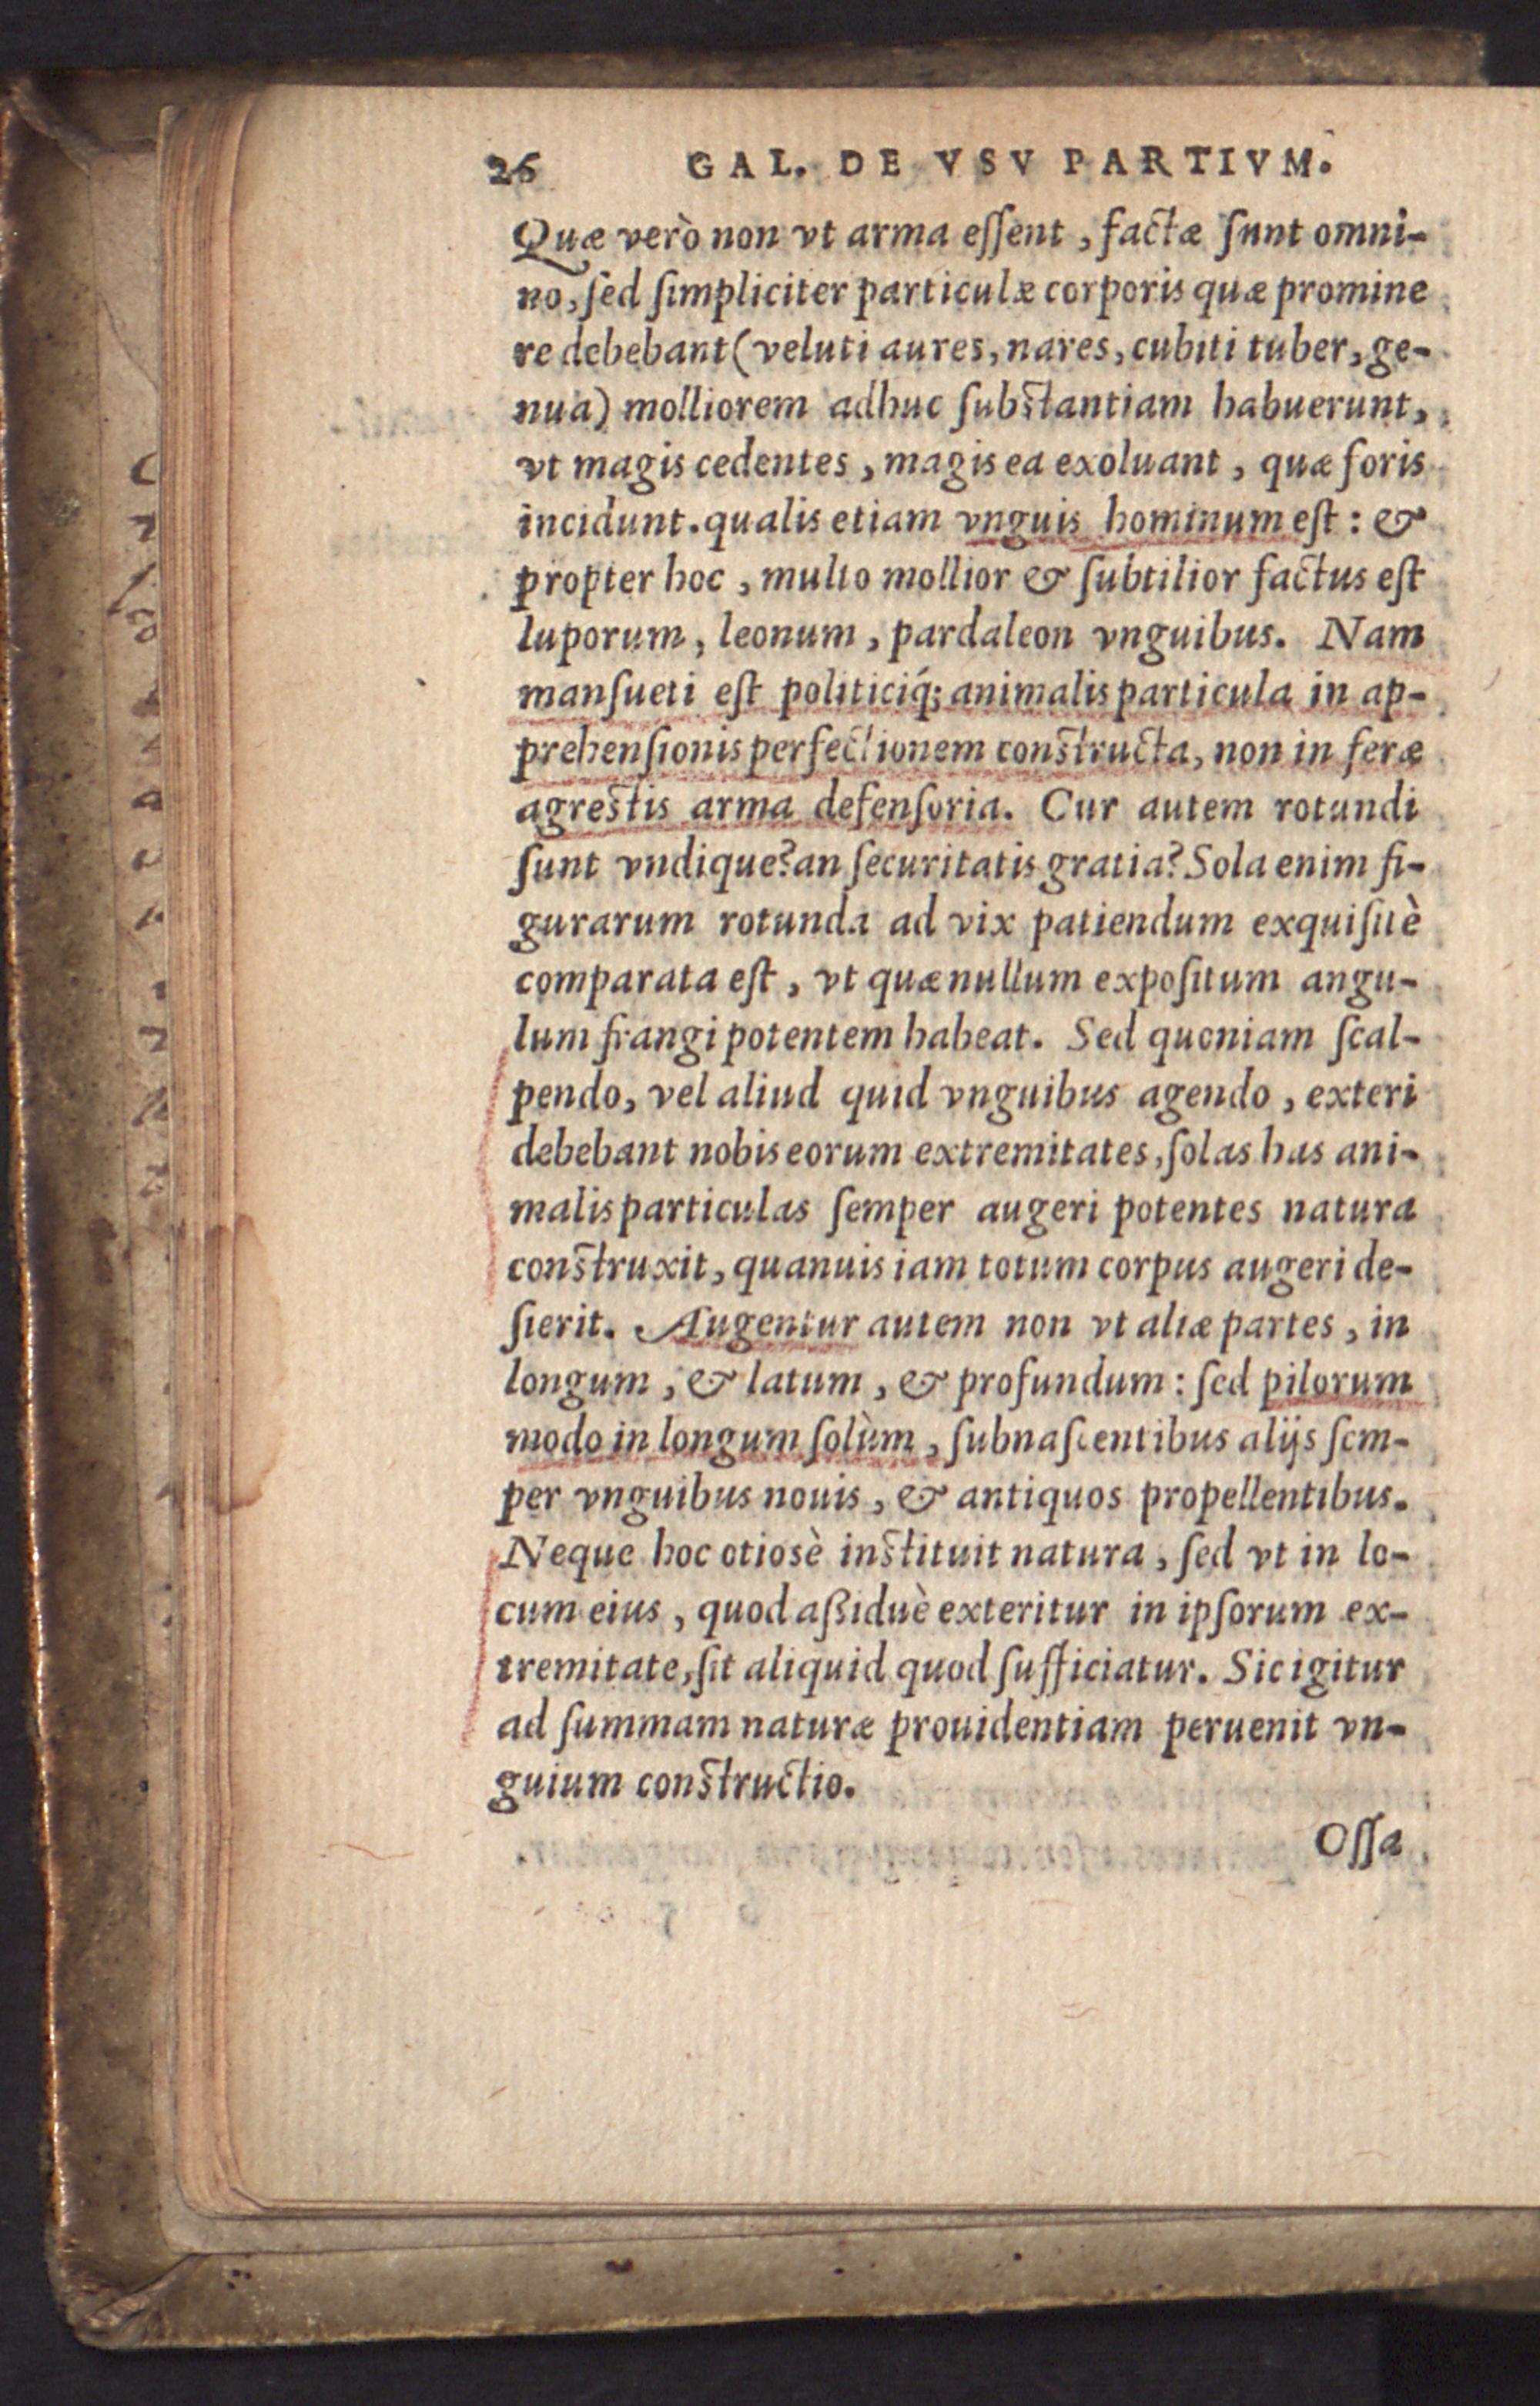 26 GAL. DE VSV PARTIVM.
Quæ verò non vt arma eſſent, factæ ſunt omni-
no, ſed ſimpliciter particulæ corporis quæ promine
re debebant (veluti aures, nares, cubiti tuber, ge-
nua) molliorem adhuc ſubſtantiam habuerunt,
vt magis cedentes, magis ea exoluant, quæ foris
incidunt. qualis etiam vnguis hominum eſt: &
propter hoc, multo mollior & ſubtilior factus eſt
luporum, leonum, pardaleon vnguibus. Nam
manſueti eſt politiciq́; animalis particula in ap-
prehenſionis perfectionem conſtructa, non in feræ
agreſtis arma defenſoria. Cur autem rotundi
ſunt vndique? an ſecuritatis gratia? Sola enim fi-
gurarum rotunda ad vix patiendum exquiſitè
comparata eſt, vt quæ nullum expoſitum angu-
lum frangi potentem habeat. Sed quoniam ſcal-
pendo, vel aliud quid vnguibus agendo, exteri
debebant nobis eorum extremitates, ſolas has ani-
malis particulas ſemper augeri potentes natura
conſtruxit, quanuis iam totum corpus augeri de-
ſierit. Augentur autem non vt aliæ partes, in
longum, & latum, & profundum: ſed pilorum
modo in longum ſolùm, ſubnaſcentibus alijs ſem-
per vnguibus nouis, & antiquos propellentibus.
Neque hoc otiosè inſtituit natura, ſed vt in lo-
cum eius, quod aßiduè exteritur in ipſorum ex-
tremitate, ſit aliquid quod ſufficiatur. Sic igitur
ad ſummam naturæ prouidentiam peruenit vn-
guium conſtructio.
Oſſa